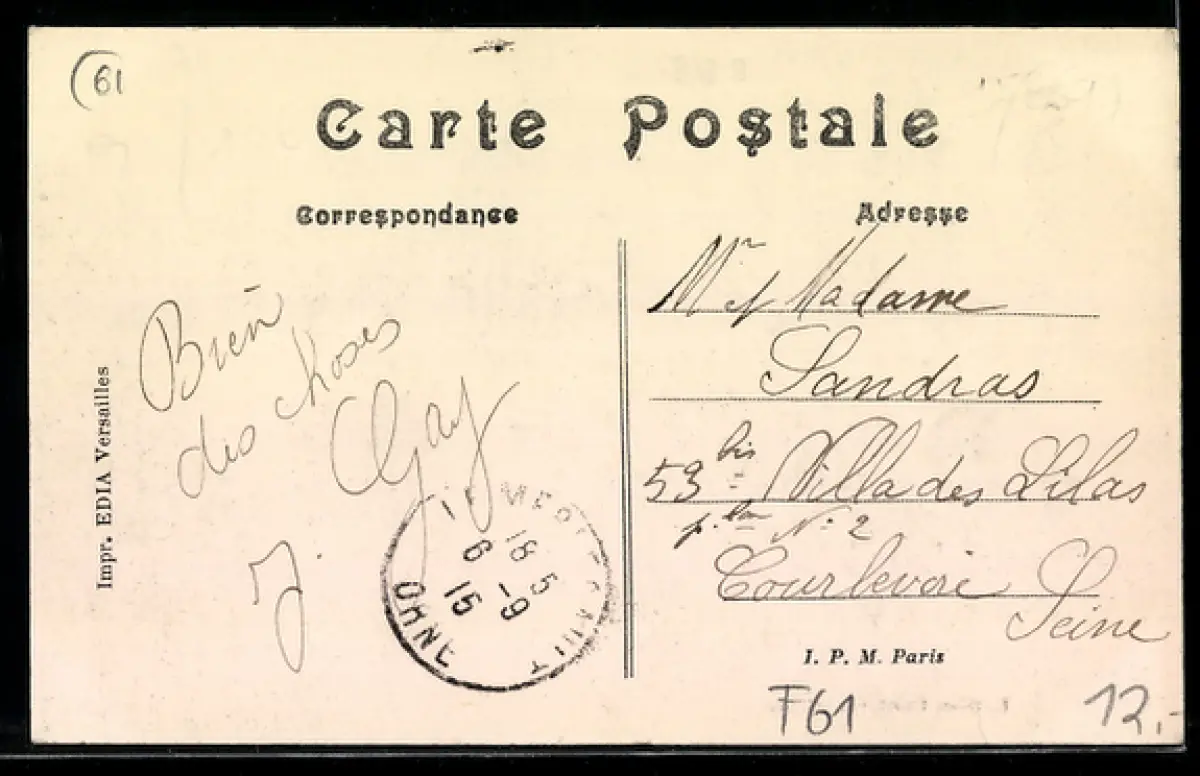 (61
Carte Postale
Correspondance
Adresse
Bien
des choses
Gay
J.
Impr. EDIA Versailles
LE MERLERAULT
18 5
6 -9
15
ORNE
Mr et Madame
Sandras
53 bis Villa des Lilas
N: 2
Courbevoie Seine
I. P. M. Paris
F61
12,-